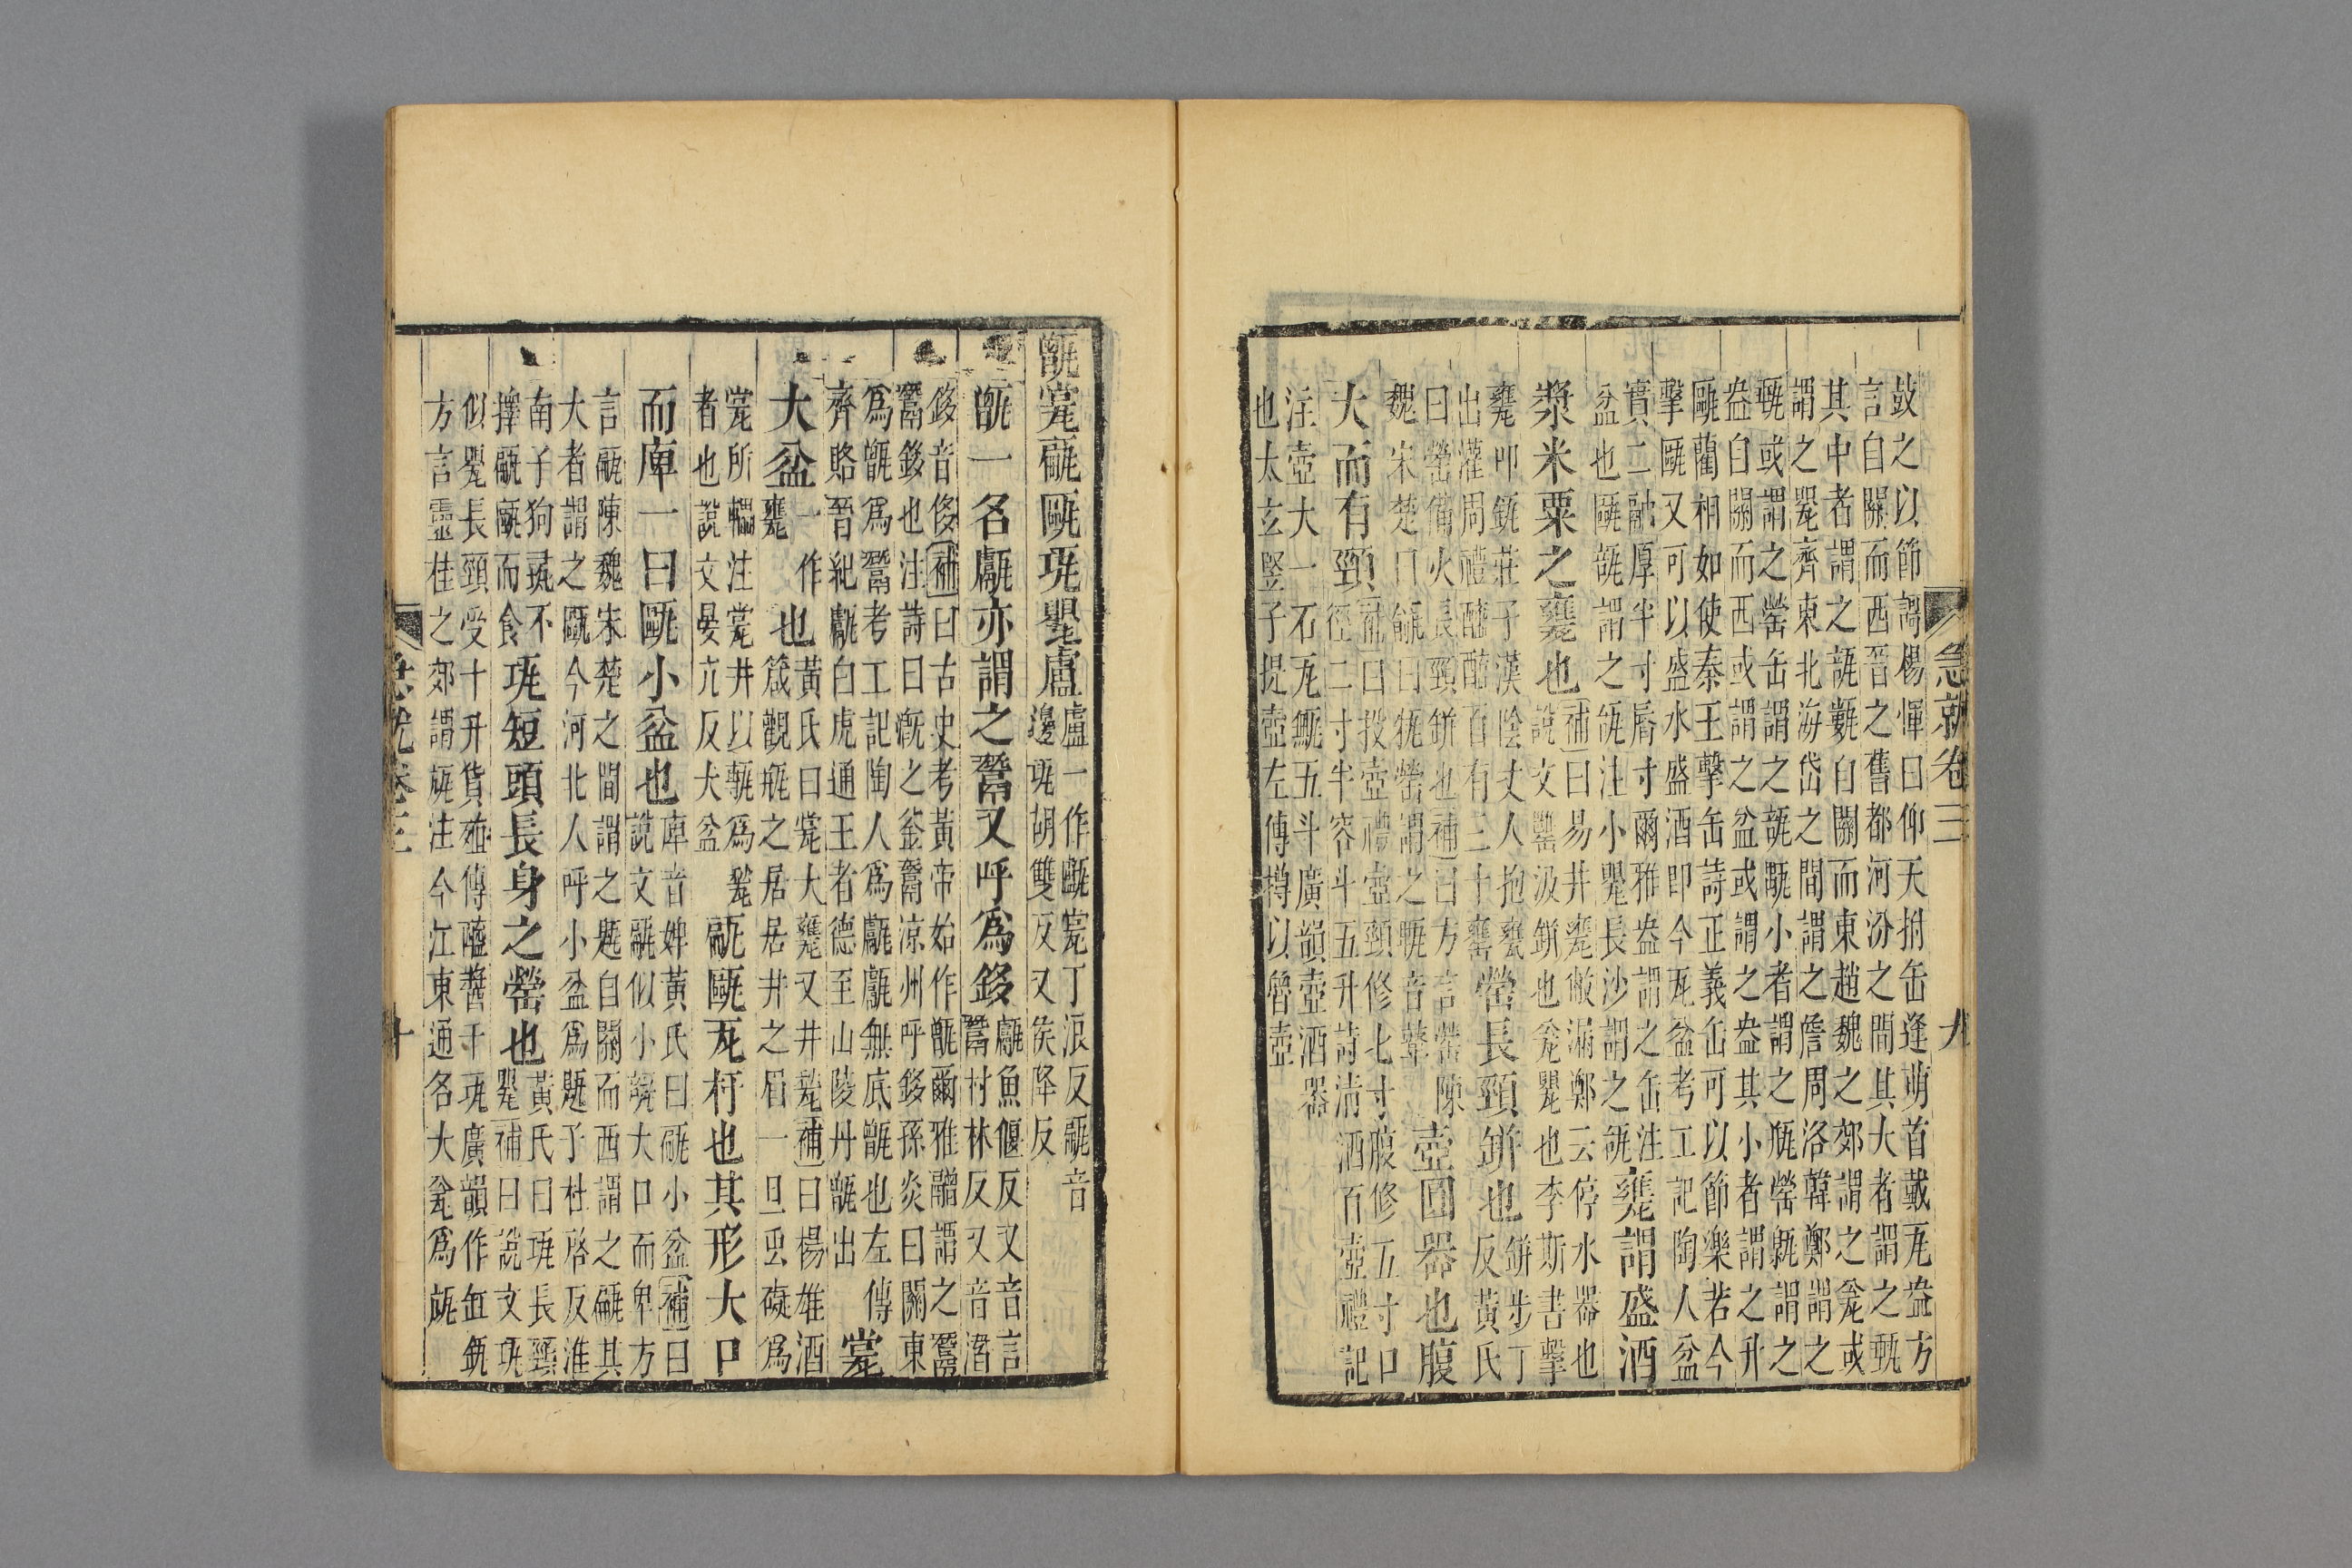 急就卷三
九
鼓之以節謌楊惲曰仰天拊缶逢萌首戴瓦盎方
言自關而西晉之舊都河汾之間其大者謂之甀
其中者謂之瓿甊自關而東趙魏之郊謂之瓮或
謂之甖齊東北海岱之間謂之儋周洛韓鄭謂之
甀或謂之罃缶謂之瓿甌小者謂之瓶罃甈謂之
盎自關而西或謂之盆或謂之盎其小者謂之升
甌藺相如使秦王擊缶詩正義缶可以節樂若今
擊甌又可以盛水盛酒即今瓦盆考工記陶人盆
實二鬴厚半寸脣寸爾雅盎謂之缶注
盆也甌瓿謂之瓵注小甖長沙謂之瓵
甕謂盛酒
漿米粟之甕也
補曰易井甕敝漏鄭云停水器也
說文罋汲缾也瓮甖也李斯書擊
甕叩缻莊子漢陰丈人抱甕
出灌周禮醯醢百有二十罋
罃長頸缾也
缾步丁
反黃氏
曰罃備火長頸缾也補曰方言罃陳
魏宋楚曰㼶曰㼽罃謂之甀音華
壺圓器也腹
大而有頸
補曰投壺禮壺頸修七寸腹修五寸口
徑二寸半容斗五升詩清酒百壺禮記
注壺大一石瓦甒五斗廣韻壺酒器
也太玄竪子提壺左傳樽以魯壺
甑甂甌瓨甖盧
盧一作甗甂丁浪反甂音
邊瓨胡雙反又侯降反
甑一名甗亦謂之鬵又呼爲鉹
甗魚偃反又音言
鬵材林反又音潛
鉹音侈補曰古史考黃帝始作甑爾雅䰝謂之鬵
鬵鉹也注詩曰溉之釜鬵涼州呼鉹孫炎曰關東
爲甑爲鬵考工記陶人爲甗甗無底甑也左傳
齊賂晉紀甗白虎通王者德至山陵丹甑出
大盆
一作
甕
也
黃氏曰瓽大甕又井甃補曰楊雄酒
箴觀瓶之居居井之眉一旦叀礙爲
瓽所轠注瓽井以甎爲甃
者也說文晏亢反大盆
甂甌瓦杅也其形大口
而庳一曰甌小盆也
庳音婢黃氏曰甂小盆補曰
說文甂似小瓿大口而卑方
言甂陳魏宋楚之間謂之㼵自關而西謂之甂其
大者謂之甌今河北人呼小盆爲㼵子杜啓反淮
南子狗彘不
擇甂甌而食
瓨短頭長身之罃也
黃氏曰瓨長頸
甖補曰說文瓨
似甖長頸受十升貨殖傳醯醬千瓨廣韻作缸缻
方言靈桂之郊謂瓶注今江東通名大瓮爲瓶
急就卷三
十